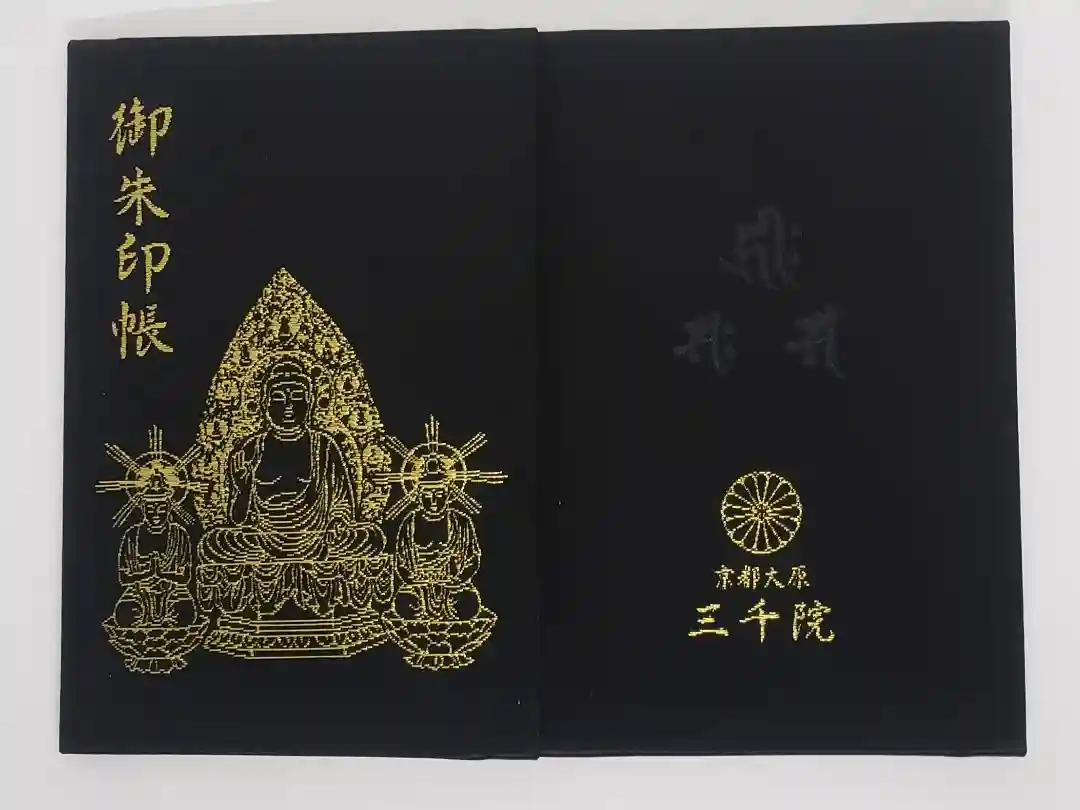 御朱印帳
京都大原
三千院